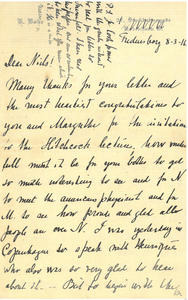 Fredensborg 8-3-16
Dear Niels!
Many thanks for your letter and
the most heartiest congratulations to
you and Margrethe for the invitation
to the Hitchcock lecture, how wonder
full must it be for you both to get
so much interesting to see and for N
to meet the american physicist and for
M. to see how proud and glad all
people are over N. I was yesterday in
Copenhagen to speak with
who also was so very glad to hear
about it. -- But to begin with the